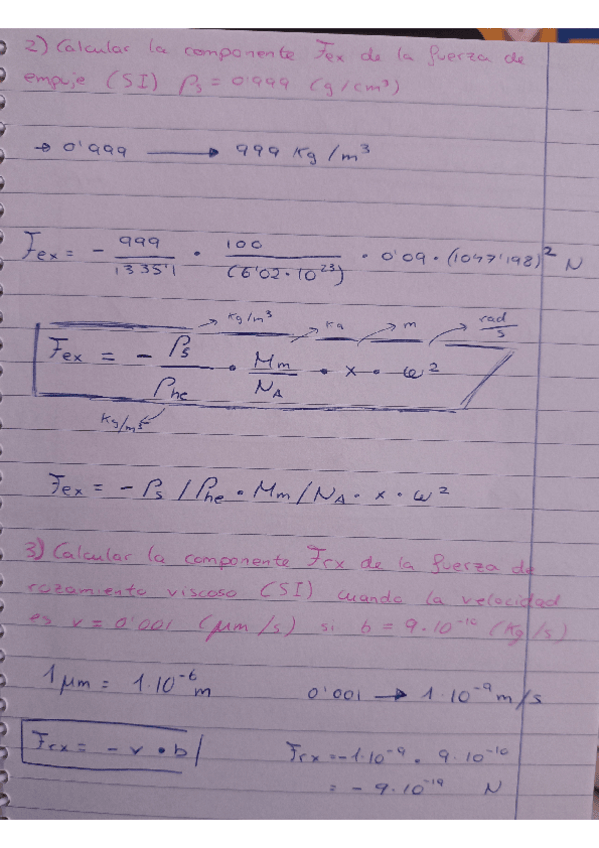 2) Calcular la componente Fex de la fuerza de
empuje (SI) ρs = 0'999 (g/cm³)
→ 0'999 ⟶ 999 Kg/m³
Fex = - 999/1335'1 · 100/(6'02·10²³) · 0'09 · (1047'198)² N
Kg/m³ Kg m rad/s
Fex = - ρs/ρhe · Mm/NA · x · ω²
Kg/m³
Fex = - ρs/ρhe · Mm/NA · x · ω²
3) Calcular la componente Frx de la fuerza de
rozamiento viscoso (SI) cuando la velocidad
es v = 0'001 (μm/s) si b = 9·10⁻¹⁰ (Kg/s)
1 μm = 1·10⁻⁶ m 0'001 → 1·10⁻⁹ m/s
Frx = - v · b Frx = -1·10⁻⁹ · 9·10⁻¹⁰
= - 9·10⁻¹⁹ N